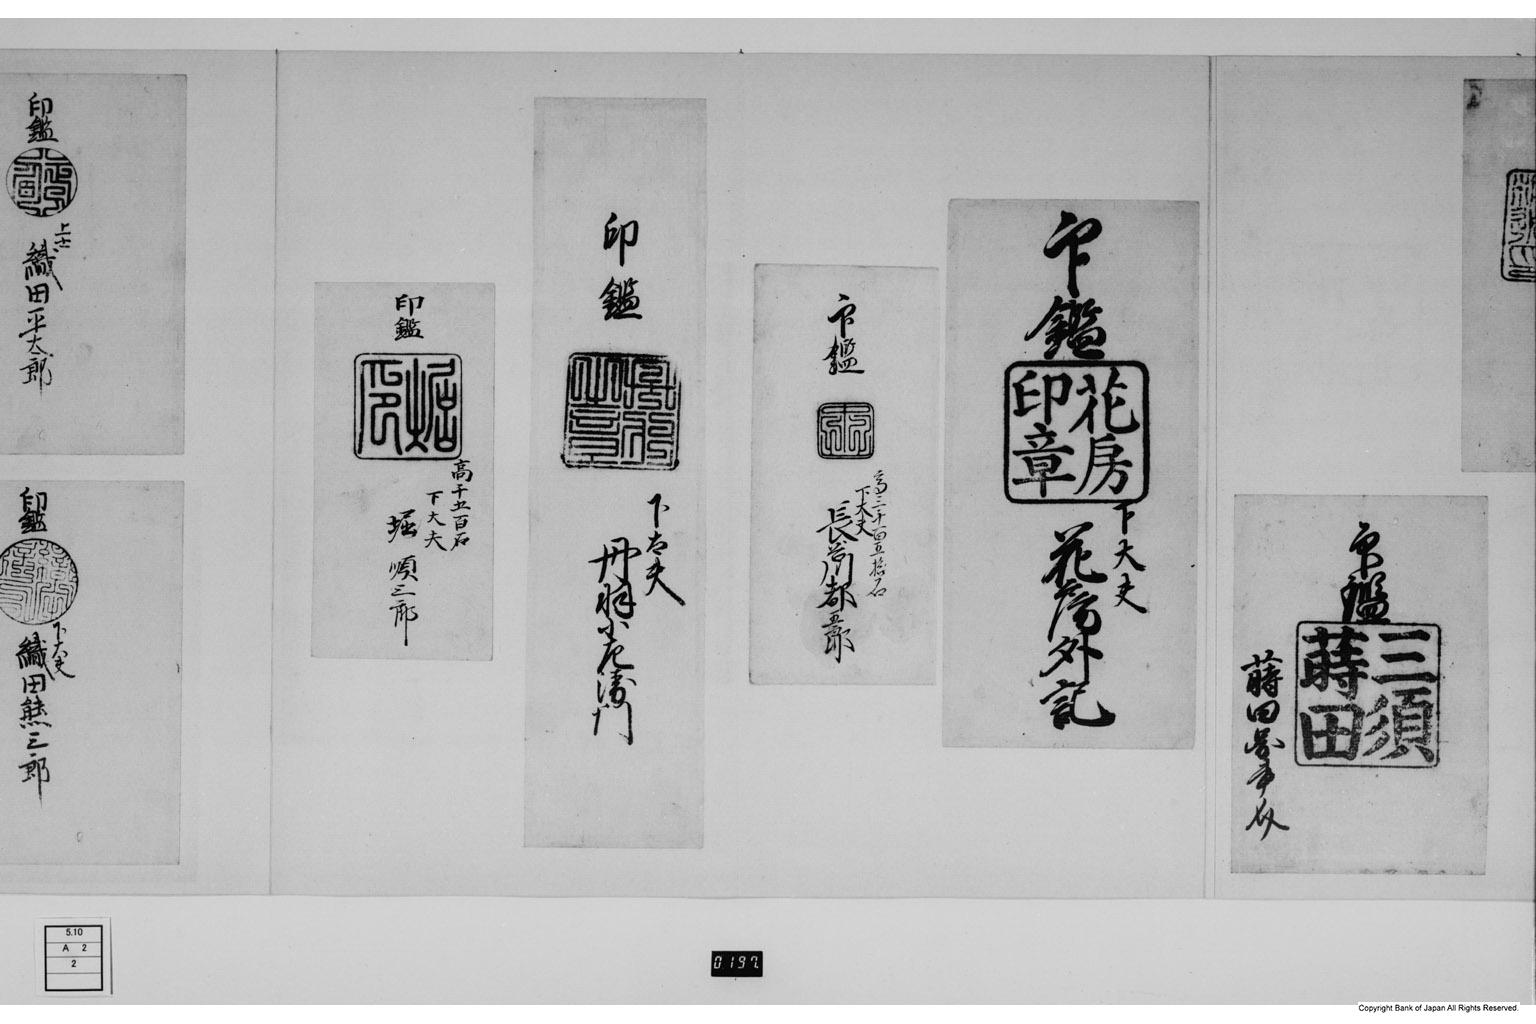 印鑑
三須
蒔田
印鑑
花房
印章
下大夫
花房外記
印鑑
高三千百五拾石
下大夫
長谷川都五郎
印鑑
下大夫
丹羽小左衛門
印鑑
高千五百石
下大夫
堀順三郎
印鑑
上士
織田平太郎
印鑑
下大夫
織田熊三郎
5.10
A 2
2
0197
Copyright Bank of Japan All Rights Reserved.